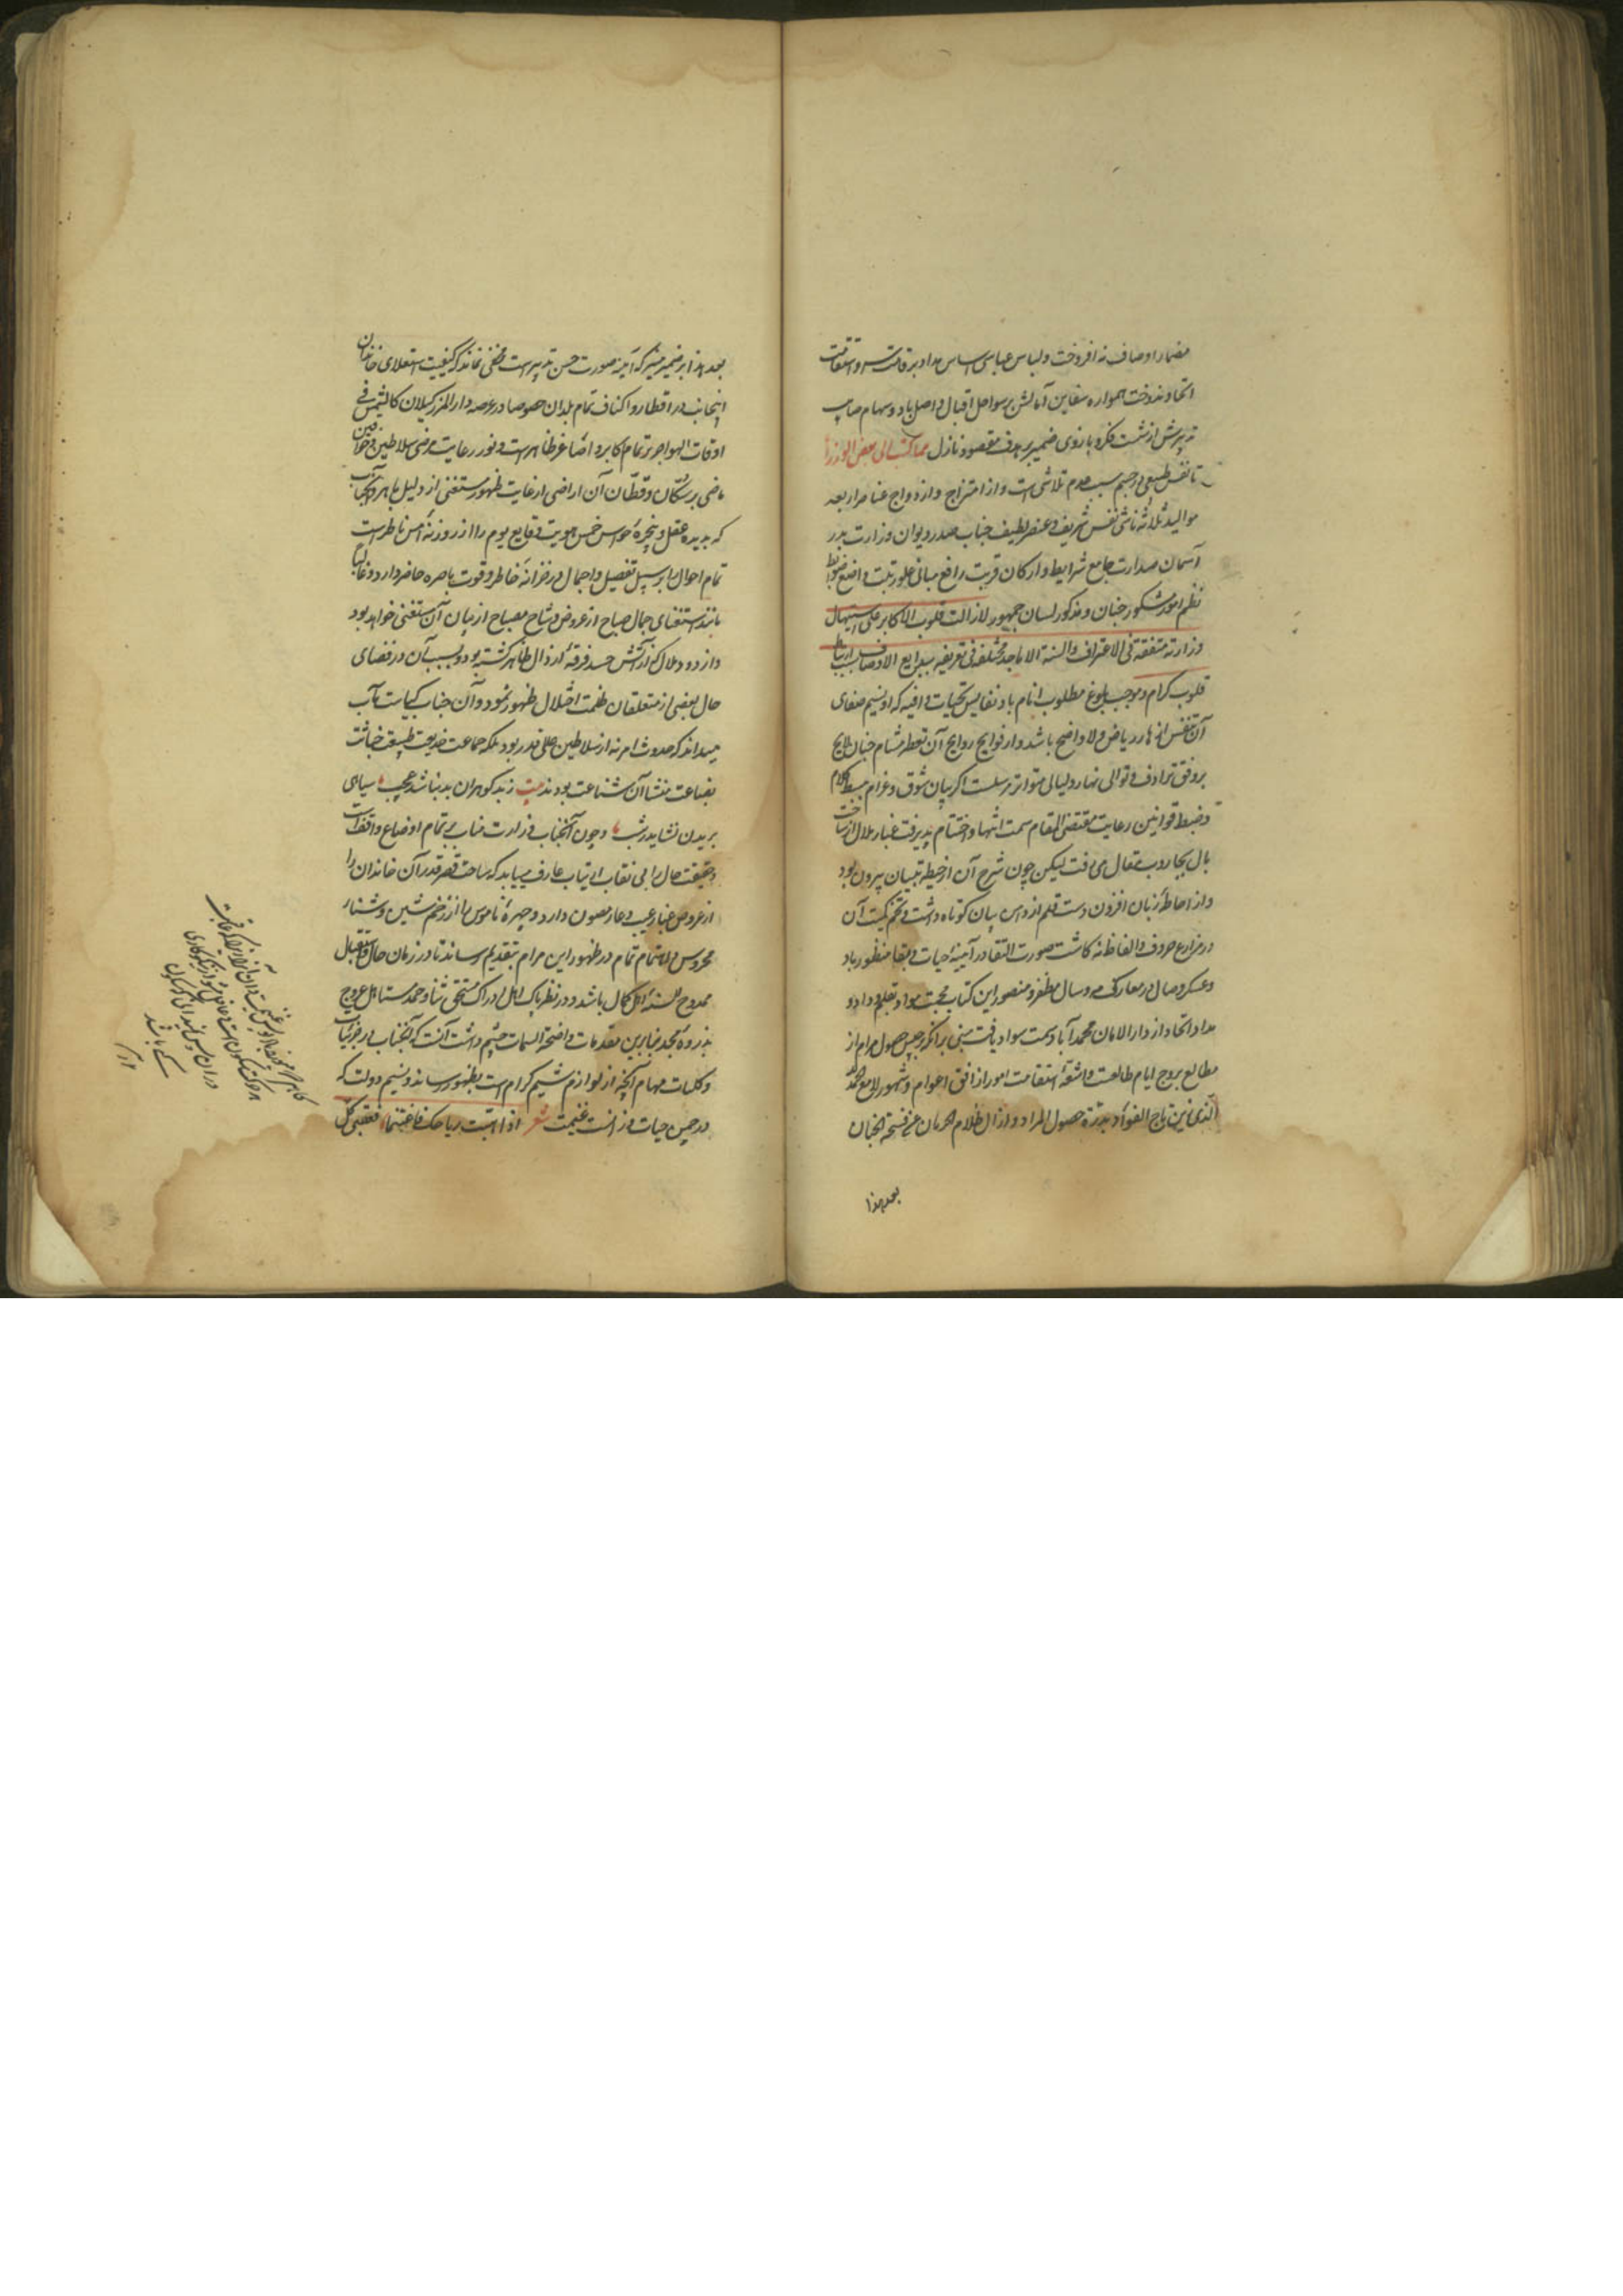 مضمار اوصاف نه افروخت و لباس عباسی اساس مداد بر قامت و استقامت
اتحاد ندوخت همواره سفاین آمالش بر سواحل اقبال واصل باد و سهام صایب
تدبیرش از شست فکر و بازوی ضمیر بر هدف مقصود نازل مما کتب الی بعض الوزراء
تا نفس طبیعی در جسم سبب عدم تلاشی است و از امتزاج و ازدواج عناصر اربعه
موالید ثلاثه ناشی نفس شریف و عنصر لطیف جناب صدر دیوان وزارت بدر
آسمان صدارت جامع شرایط و ارکان قربت رافع مبانی علو رتبت واضع ضوابط
نظم امور مشکور جنان و مذکور لسان جمهور لازالت قلوب الاکابر علی استیهال
وزارته متفقة فی الاعتراف والسنة الاماجد مختلفة فی تعریفه ببدایع الاوصاف سبب ارتباط
قلوب کرام و موجب بلوغ مطلوب انام باد نفایس تحیات وافیه که از نسیم صفای
آن تنفس ازهار ریاض ولا واضح باشد و از فوایح روایح آن تعطر مشام جنان لایح
بر وفق ترادف و توالی نهار و لیالی متواتر مرسلست اگر بیان شوق و غرام ببسط کلام
و ضبط قوانین رعایت مقتضی المقام سمت انتها و اختتام پذیرفت غبار ملال از ساحت
بال بجاروب مقال می رفت لیکن چون شرح آن از حیطه تبیان بیرون بود
و از احاطه زبان افزون دست قلم از دامن بیان کوتاه داشت و تخم کمیت آن
در مزارع حروف و الفاظ نه کاشت صورت التقا در آیینه حیات و بقا منظور باد
و عسکر وصال در معارک مه و سال مظفر و منصور این کتاب محبت مواد بقلم وداد و
مداد اتحاد از دار الامان محمدآباد سمت سواد یافت مبنی بر آنکه برجیس حصول مرام از
مطالع بروج ایام طالعست و اشعه استقامت امور از افق اعوام و شهور لامع الحمد لله
الذی زین تاج الفؤاد بدرة حصول المراد و ازال ظلام الحرمان عن فسحة الجنان
بعد هذا
بعد هذا بر ضمیر منیر که آینه صورت حسن تدبیر است مخفی نماند که کیفیت استعلای خاندان
اینجانب در اقطار و اکناف تمام بلدان خصوصا در عرصه دار المرز کیلان کالشمس فی
اوقات الهواجر بر تمام اکابر و اصاغر ظاهر است و نور رعایت مرضی سلاطین و خواقین
ماضی بر سکان و قطان آن اراضی از غایت ظهور مستغنی از دلیل باهر و آنجناب
که بدیده عقل و پنجره حواس خمس هویت وقایع یوم را از روزنه امس ناظر است
تمام احوال را بر سبیل تفصیل و اجمال در خزانه خاطر و قوت باصره حاضر دارد و غالبا
مانند استغنای جمال صباح از عروض وشاح مصباح از بیان آن مستغنی خواهد بود
و از دود ملال که از آتش حسد فرقه ارذال ظاهر گشته بود و بسبب آن در فضای
حال بعضی از متعلقان ظلمت اختلال ظهور نمود و آن جناب کیاست مآب
میداند که حدوث امر نه از سلاطین علی قدر بود بلکه جماعت خدیعت طبیعت خباثت
بضاعت منشا آن شناعت بودند بیت ز بد کوهران بد نباشد عجب سیاهی
بریدن نشاید ز شب و چون آنجناب وزارت مناب بر تمام اوضاع واقف است
و حقیقت حال را بی نقاب ارتیاب عارف میباید که ساحت قصر قدر آن خاندان را
از عروض غبار عیب و عار مصون دارد و چهره ناموس را از زخم شین و شنار
محروس و اهتمام تمام در ظهور این مرام بتقدیم رساند تا در زمان حال و استقبال
ممدوح السنه اهل کمال باشد و در نظر پاک اهل ادراک مستحق ثنا و حمد و مستاهل عروج
بذروه مجد بنا برین مقدمات واضحة السمات چشم داشت آنست که آنجناب در جزئیات
و کلیات مهام آنچه از لوازم شیم کرام است بظهور رساند و نسیم دولت که
در چمن حیات وزانست غنیمت شعر اذا هبت ریاحک فاغتنمها فعقبی کل